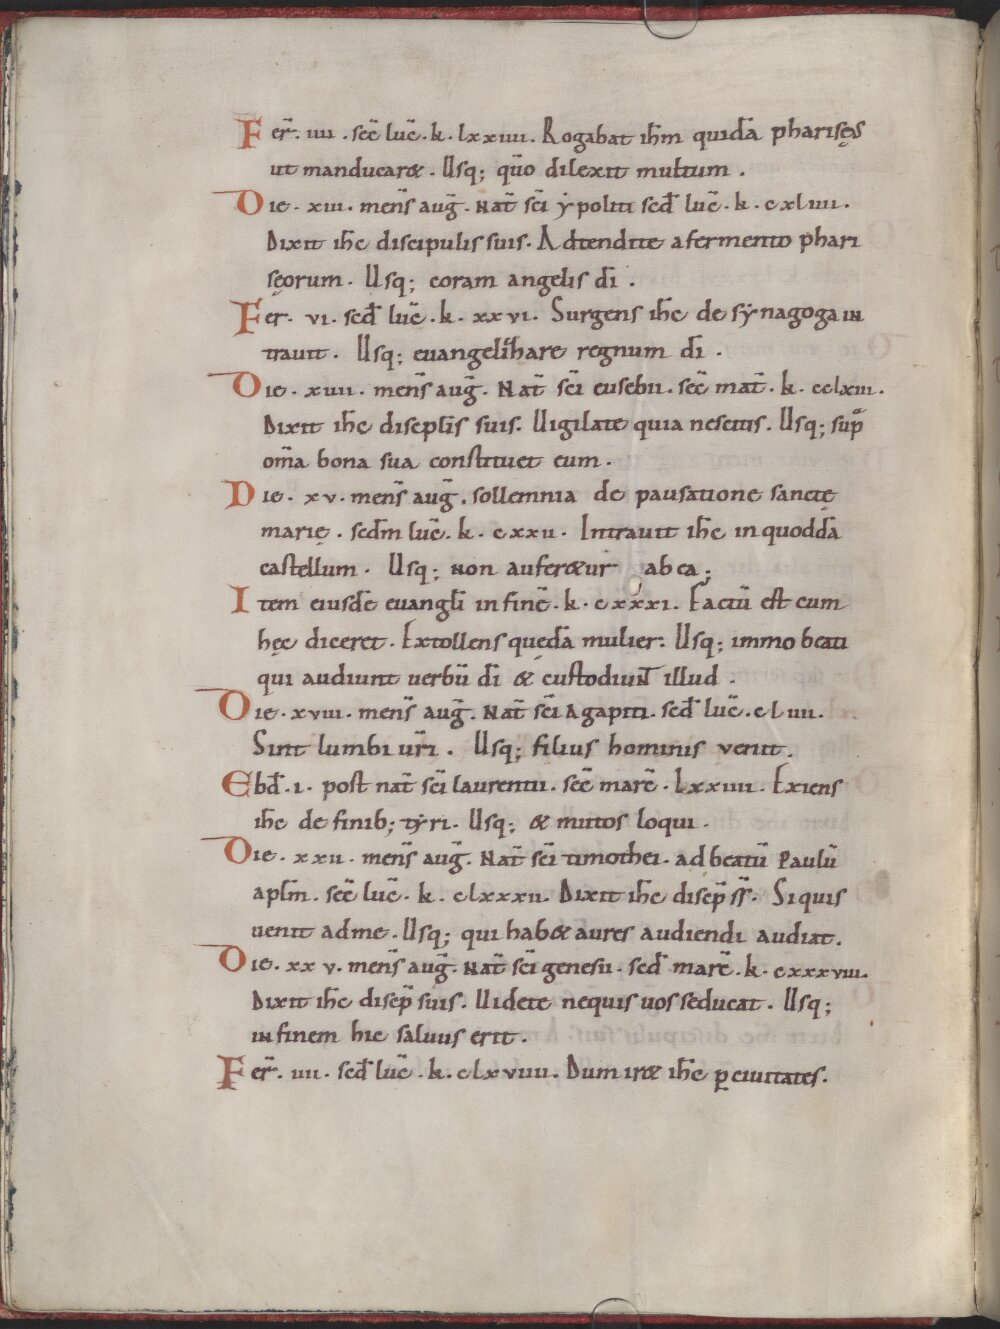 Fer̄. iiii. sec̄ luc̄. k. lxxiiii. Rogabat ih̄m quidā pharisęꝰ
ut manducar&. Usq; qūo dilexit multum.
Die. xiii. mens̄ auḡ. Nat̄ sc̄i ẏpoliti sed̄ luc̄. k. cxliiii.
Dixit ih̄c discipulis suis. Adtendite a fermento phari
sęorum. Usq; coram angelis dī.
Fer. vi. sed̄ luc̄. k. xxvi. Surgens ih̄c de sẏnagoga in
trauit. Usq; euangelīhare regnum dī.
Die. xiiii. mens̄ auḡ. Nat̄ sc̄i eusebii. sec̄ mat̄. k. cclxiii.
Dixit ih̄c discpl̄is suis. Uigilate quia nescitis. Usq; sup̄
om̄a bona sua constituet eum.
Die. xv. mens̄ auḡ. sollemnia de pausatione sanctę
marię. sedm̄ luc̄. k. cxxii. Intrauit ih̄c in quoddā
castellum. Usq; non aufer&ur ab ea;
Item eiusdē euangl̄i in finē. k. cxxxi. Factū est cum
hęc diceret. Extollens quędā mulier. Usq; immo beati
qui audiunt uerbū dī & custodiunt illud.
Die. xviii. mens̄ auḡ. Nat̄ sc̄i Agapiti. sed̄ luc̄. cliiii.
Sint lumbi ur̄i. Usq; filius hominis venit.
Ebd̄. i. post nat̄ sc̄i laurentii. sec̄ marc̄. Lxxiiii. Exiens
ih̄c de finib; tẏri. Usq; & mutos loqui.
Die. xxii. mens̄ auḡ. Nat̄ sc̄i timothei. ad beatū Paulū
aplm̄. sec̄ luc̄. k. clxxxii. Dixit ih̄c discp̄ ss̄. Si quis
uenit ad me. Usq; qui hab& aures audiendi audiat.
Die. xxv. mens̄ auḡ. Nat̄ sc̄i genesii. sed̄ marc̄. k. cxxxviii.
Dixit ih̄c discp̄ suis. Uidete nequis uos seducat. Usq;
in finem hic saluus erit.
Fer̄. iiii. sed̄ luc̄. k. clxviiii. Dum ir& ih̄c ꝑ ciuitates.